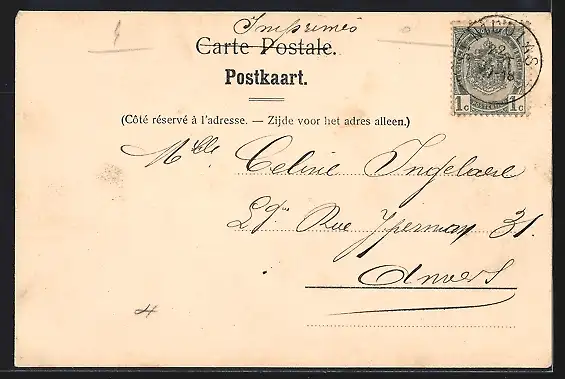 Imprimés
Carte Postale.
Postkaart.
(Côté réservé à l'adresse. — Zijde voor het adres alleen.)
Melle. Celine Ingelaere
Rue Yperman 31.
Anvers
1c 1c